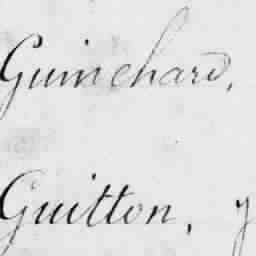 Guinchard,
Guitton, y